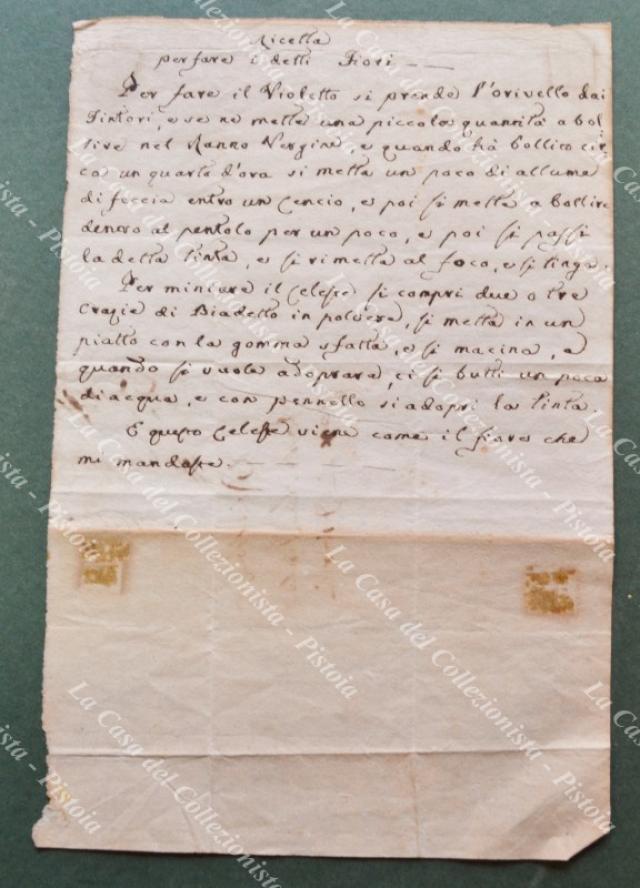 Ricetta
per fare i detti Fiori. —
Per fare il Violetto si prende l'orivello dai
Tintori, e se ne mette una piccola quantità a bol
lire nel Ranno Vergine, e quando hà bollito cir
ca un quarto d'ora si metta un poco di allume
di feccia entro un Cencio, e poi si metta a bollire
dentro al pentolo per un poco, e poi si passi
la detta tinta, e si rimetta al foco, e si tinga.
Per miniare il Celeste si compri due o tre
Crazie di Biadetto in polvere, si metta in un
piatto con la gomma sfatta, e si macina, e
quando si vuole adoprare, ci si butti un poca
di acqua, e con pennello si adopri la tinta.
E questo Celeste viene come il fiore che
mi mandaste. —
La Casa del Collezionista - Pistoia